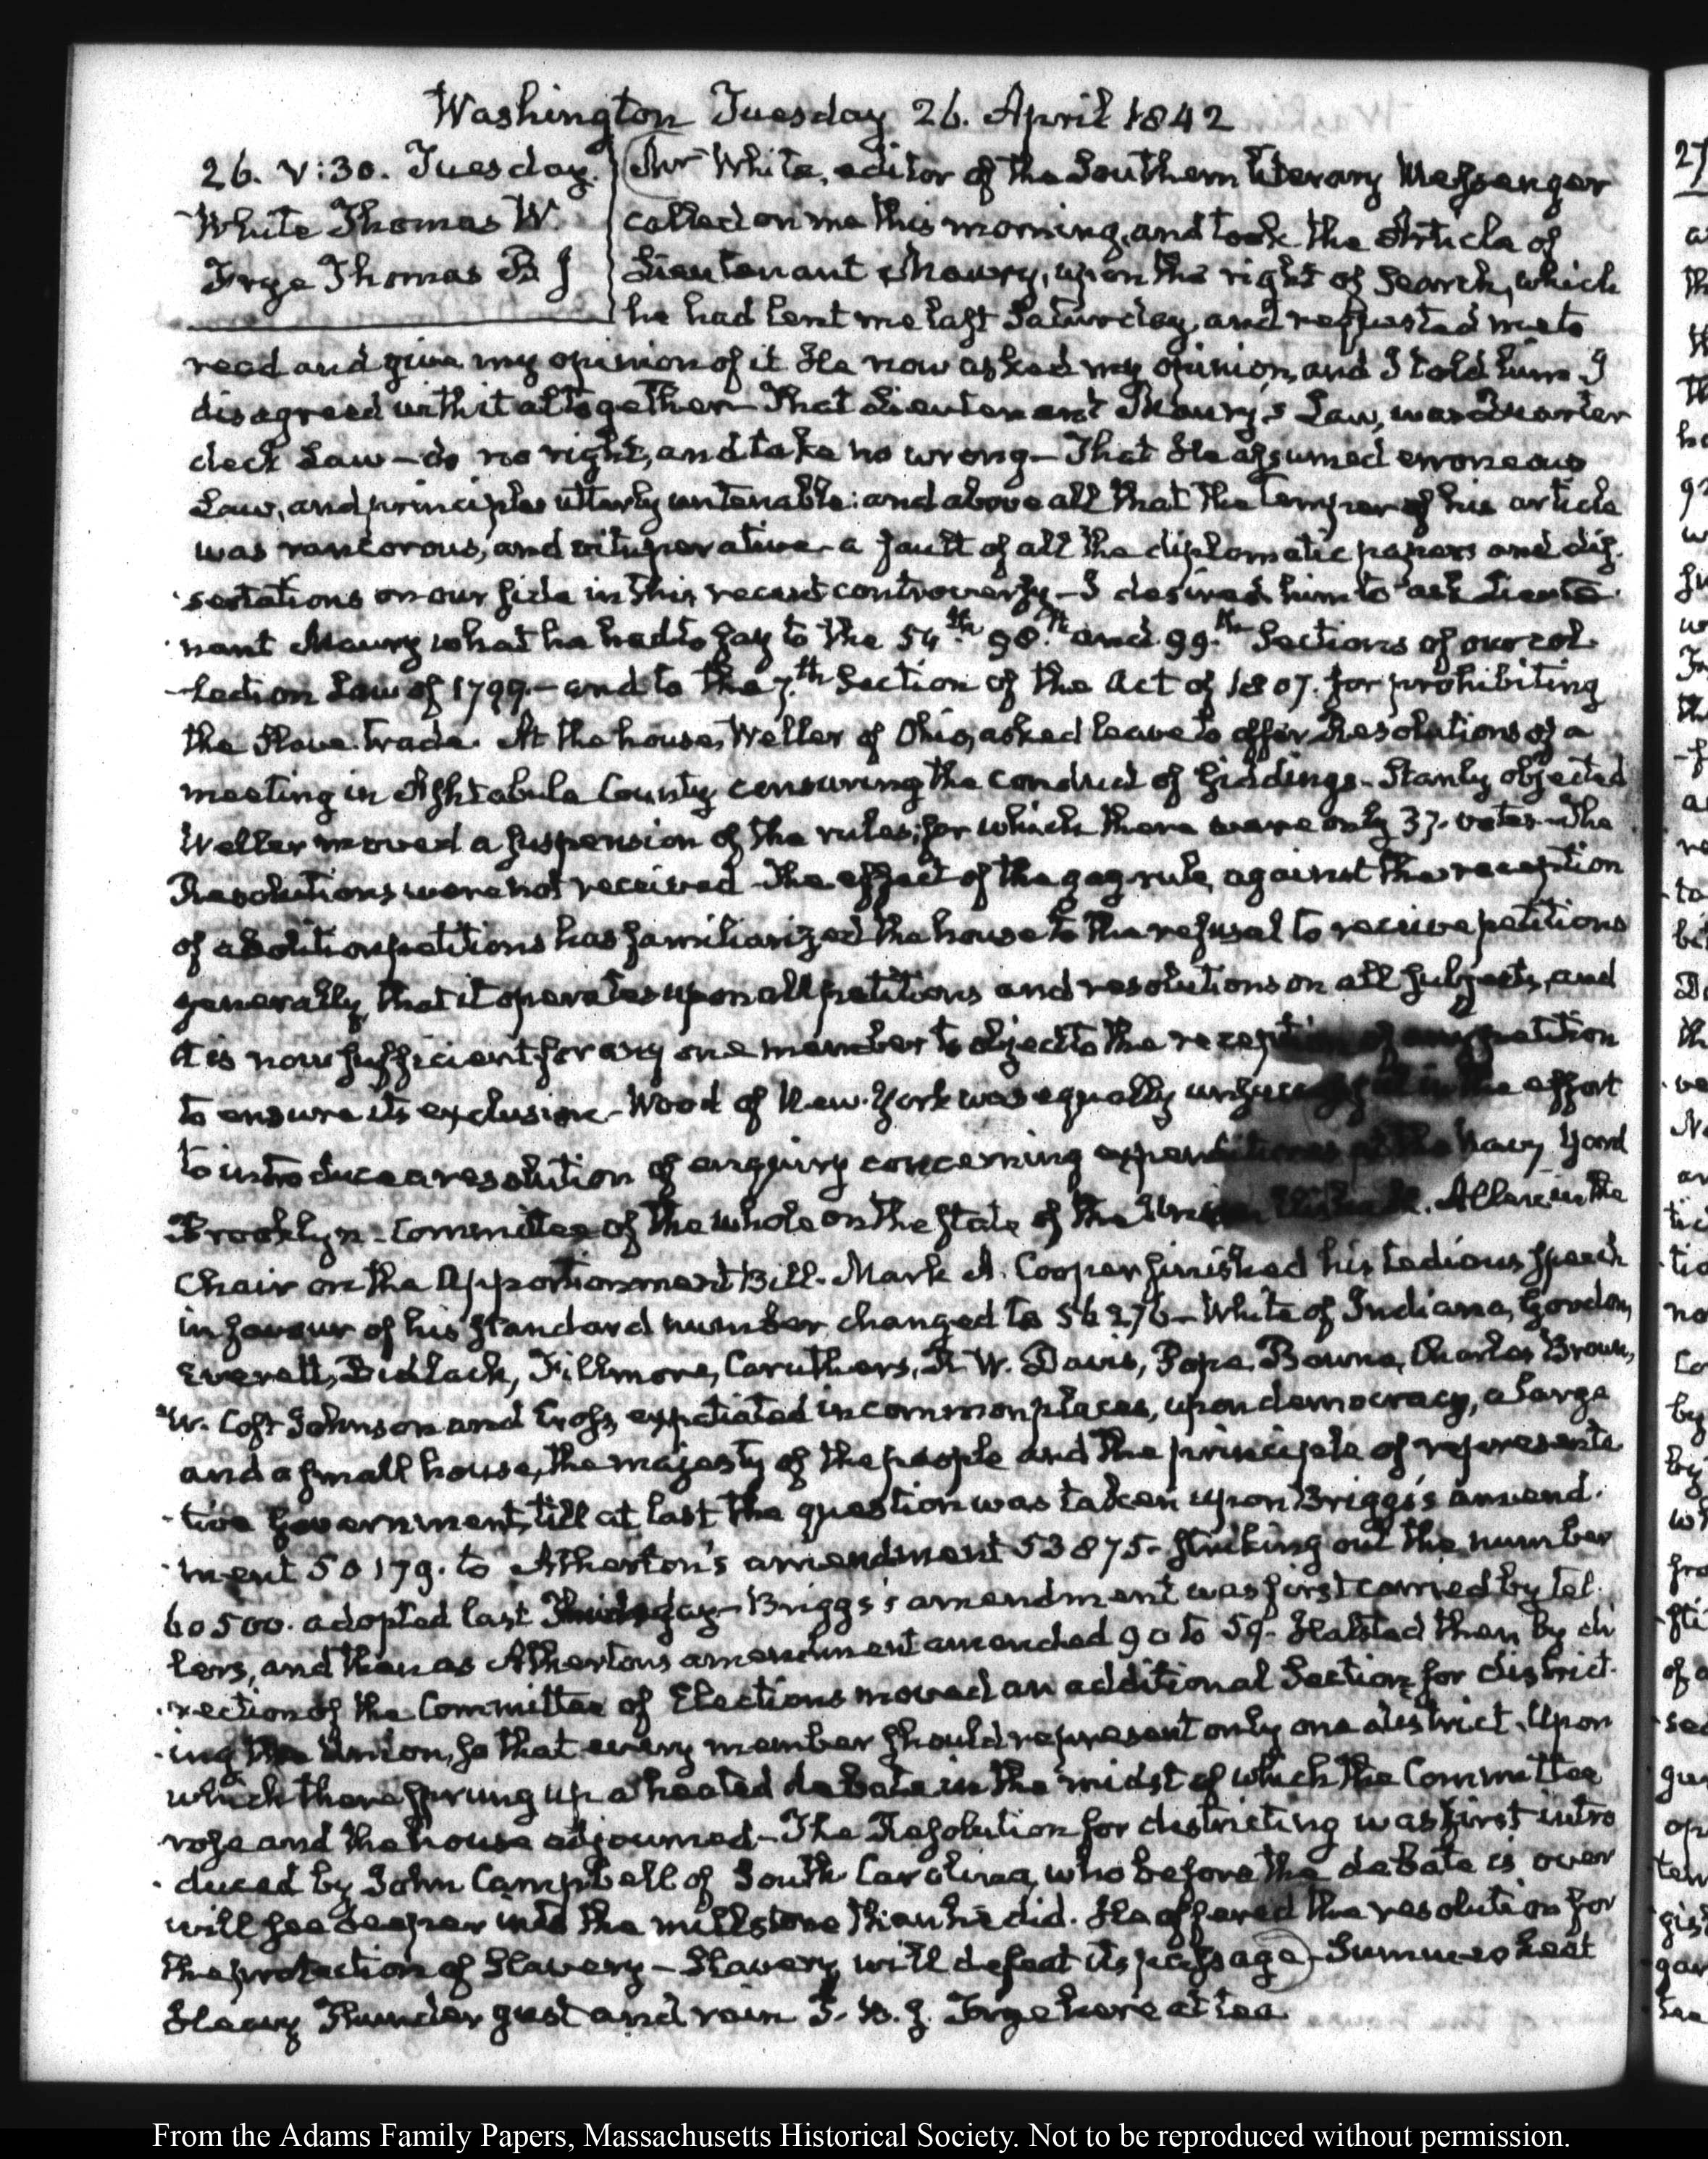 Washington Tuesday 26. April 1842
26. V:30. Tuesday.
White Thomas W.
Frye Thomas B J
Mr White, editor of the Southern literary Messenger
called on me this morning, and took the Article of
Lieutenant Maury, upon the right of Search, which
he had lent me last Saturday, and requested me to
read and give my opinion of it He now asked my opinion, and I told him I
disagreed with it altogether—That Lieutenant Maury's Law, was Quarter
deck Law—do no right, and take no wrong—That He assumed erroneous
Law, and principles utterly untenable: and above all that the temper of his article
was rancorous, and vituperative—a fault of all the diplomatic papers and dis-
sertations on our side in this recent controversy—I desired him to ask Lieute-
nant Maury what he had to say to the 54th 98th and 99th Sections of our col-
-lection Law of 1799.—and to the 7th Section of the Act of 1807. for prohibiting
the Slave trade. At the house, Weller of Ohio, asked leave to offer Resolutions of a
meeting in Ashtabula County censuring the conduct of Giddings—Stanly objected
Weller moved a suspension of the rules; for which there were only 37. votes—The
Resolutions were not received—The effect of the gag rule, against the reception
of abolition petitions has familiarized the house to the refusal to receive petitions
generally, that it operates upon all petitions and resolutions on all subjects, and
it is now sufficient for any one member to object to the reception of any petition
to ensure its exclusion—Wood of New-York was equally unsuccessful in the effort
to introduce a resolution of enquiry concerning expenditures at the Navy Yard
Brooklyn—Committee of the whole on the state of the Union. Allen in the
Chair on the Apportionment Bill. Mark A. Cooper finished his tedious speech
in favour of his standard number, changed to 56276—White of Indiana, Gordon,
Everett, Bidlack, Fillmore, Caruthers, R. W. Davis, Pope, Bowne, Charles Brown,
W. Cost Johnson and Cross, expatiated in common places, upon democracy, a large
and a small house, the majesty of the people and the principle of representa-
-tive Government, till at last the question was taken upon Briggs's amend-
-ment 50179. to Atherton's amendment 53875—striking out the number
60500. adopted last Thursday—Briggs's amendment was first carried by tel-
lers, and then as Atherton's amendment amended 90 to 59. Halsted then by di-
-rection of the Committee of Elections moved an additional Section, for district-
-ing the Union, so that every member should represent only one district. Upon
which there sprung up a heated debate in the midst of which the Committee
rose and the house adjourned—The Resolution for districting was first intro
-duced by John Campbell of South Carolina, who before the debate is over
will see deeper into the millstone than he did. He offered the resolution for
the protection of Slavery—Slavery will defeat its passage)—Summer heat
Heavy Thunder gust and rain T. B. J. Frye here at tea
From the Adams Family Papers, Massachusetts Historical Society. Not to be reproduced without permission.